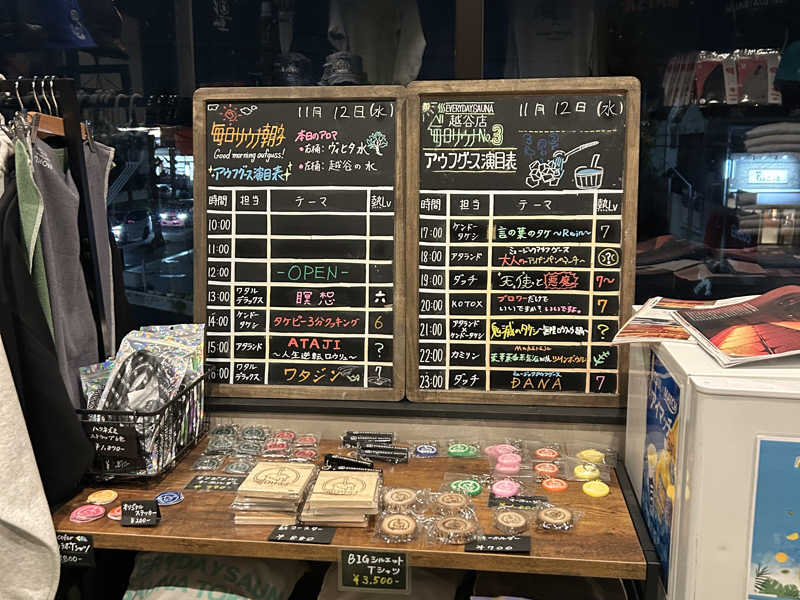 11月 12日(水)
毎日サウナ朝子
Good morning aufguss!
アウフグース演目表
本日のアロマ
・右桶:ヴィヒタ水
・左桶:越谷の水
時間 担当 テーマ 熱Lv
10:00
11:00
12:00 -OPEN-
13:00 ワタルデラックス 瞑想 六
14:00 ケンドータケシ タケピー3分クッキング 6
15:00 アタランド ATAJI ～人生逆転ロウリュ～ ?
16:00 ワタルデラックス ワタジン 7
EVERYDAYSAUNA
越谷店
毎日サウナNo.3
アウフグース演目表
11月 12日(水)
時間 担当 テーマ 熱Lv
17:00 ケンドータケシ 言の葉のタケ～Rain～ 7
18:00 アタランド ミュージックアウフグース
19:00 ダッチ 天使と悪魔 7～
20:00 KOTOX ブロワーだけでいいですか?いいですよ。 7
21:00 アタランド ケンドータケシ 鬼滅のタケシ ?
22:00 カミシン
23:00 ダッチ ミュージックアウフグース DANA 7
オリジナルステッカー
¥200-
¥880-
キーホルダー
¥700-
BIGシルエット
Tシャツ
¥3,500-
EVERYDAYSAUNA